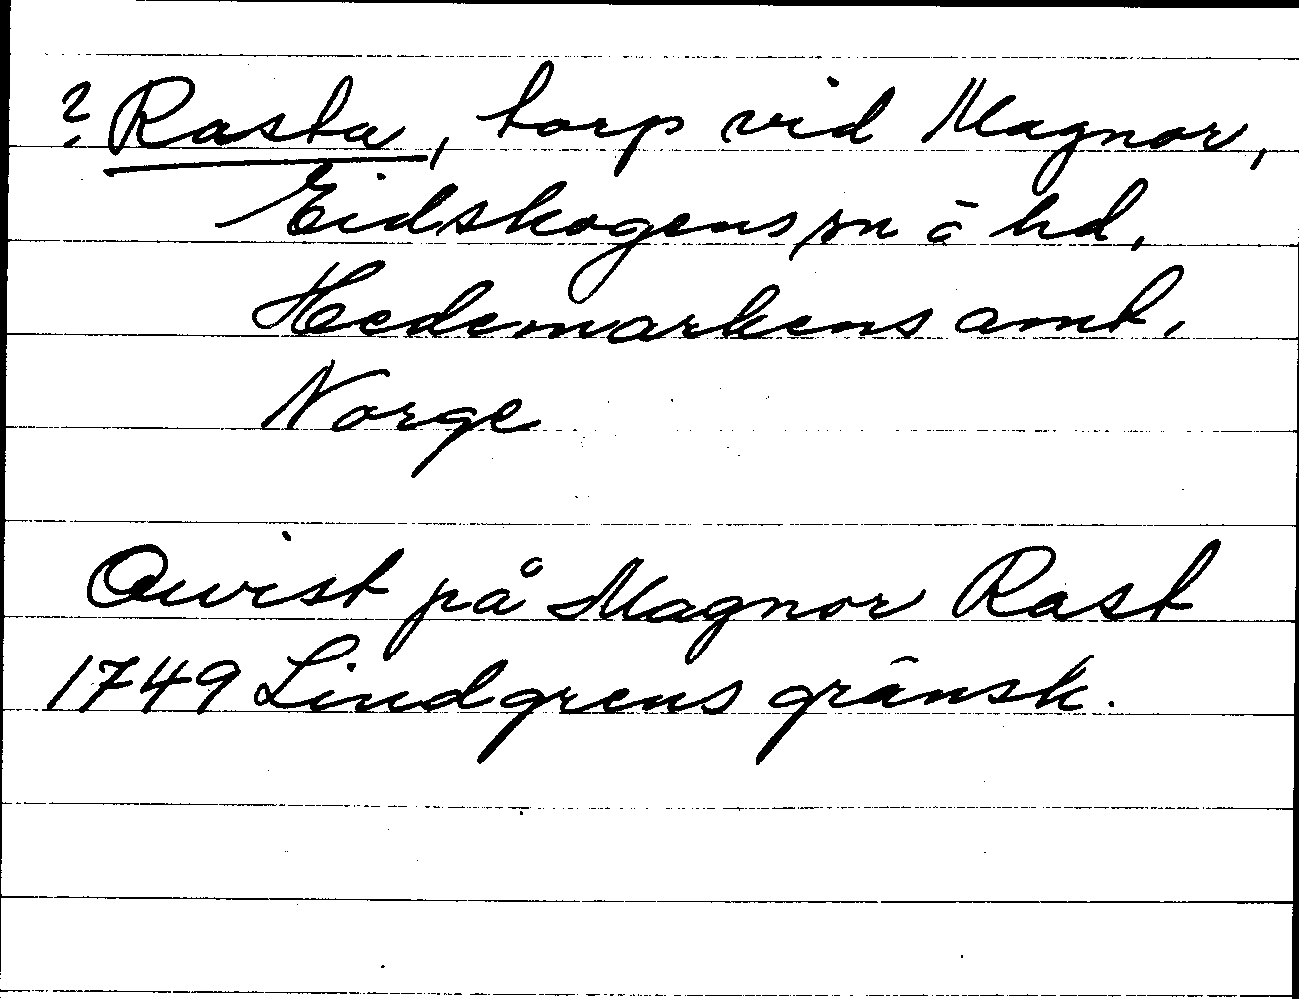 ? Rasta, torp vid Magnor,
Eidskogens sn ō hd,
Hedemarkens amt,
Norge
Qwist på Magnor Rast
1749 Lindgrens gränsk.